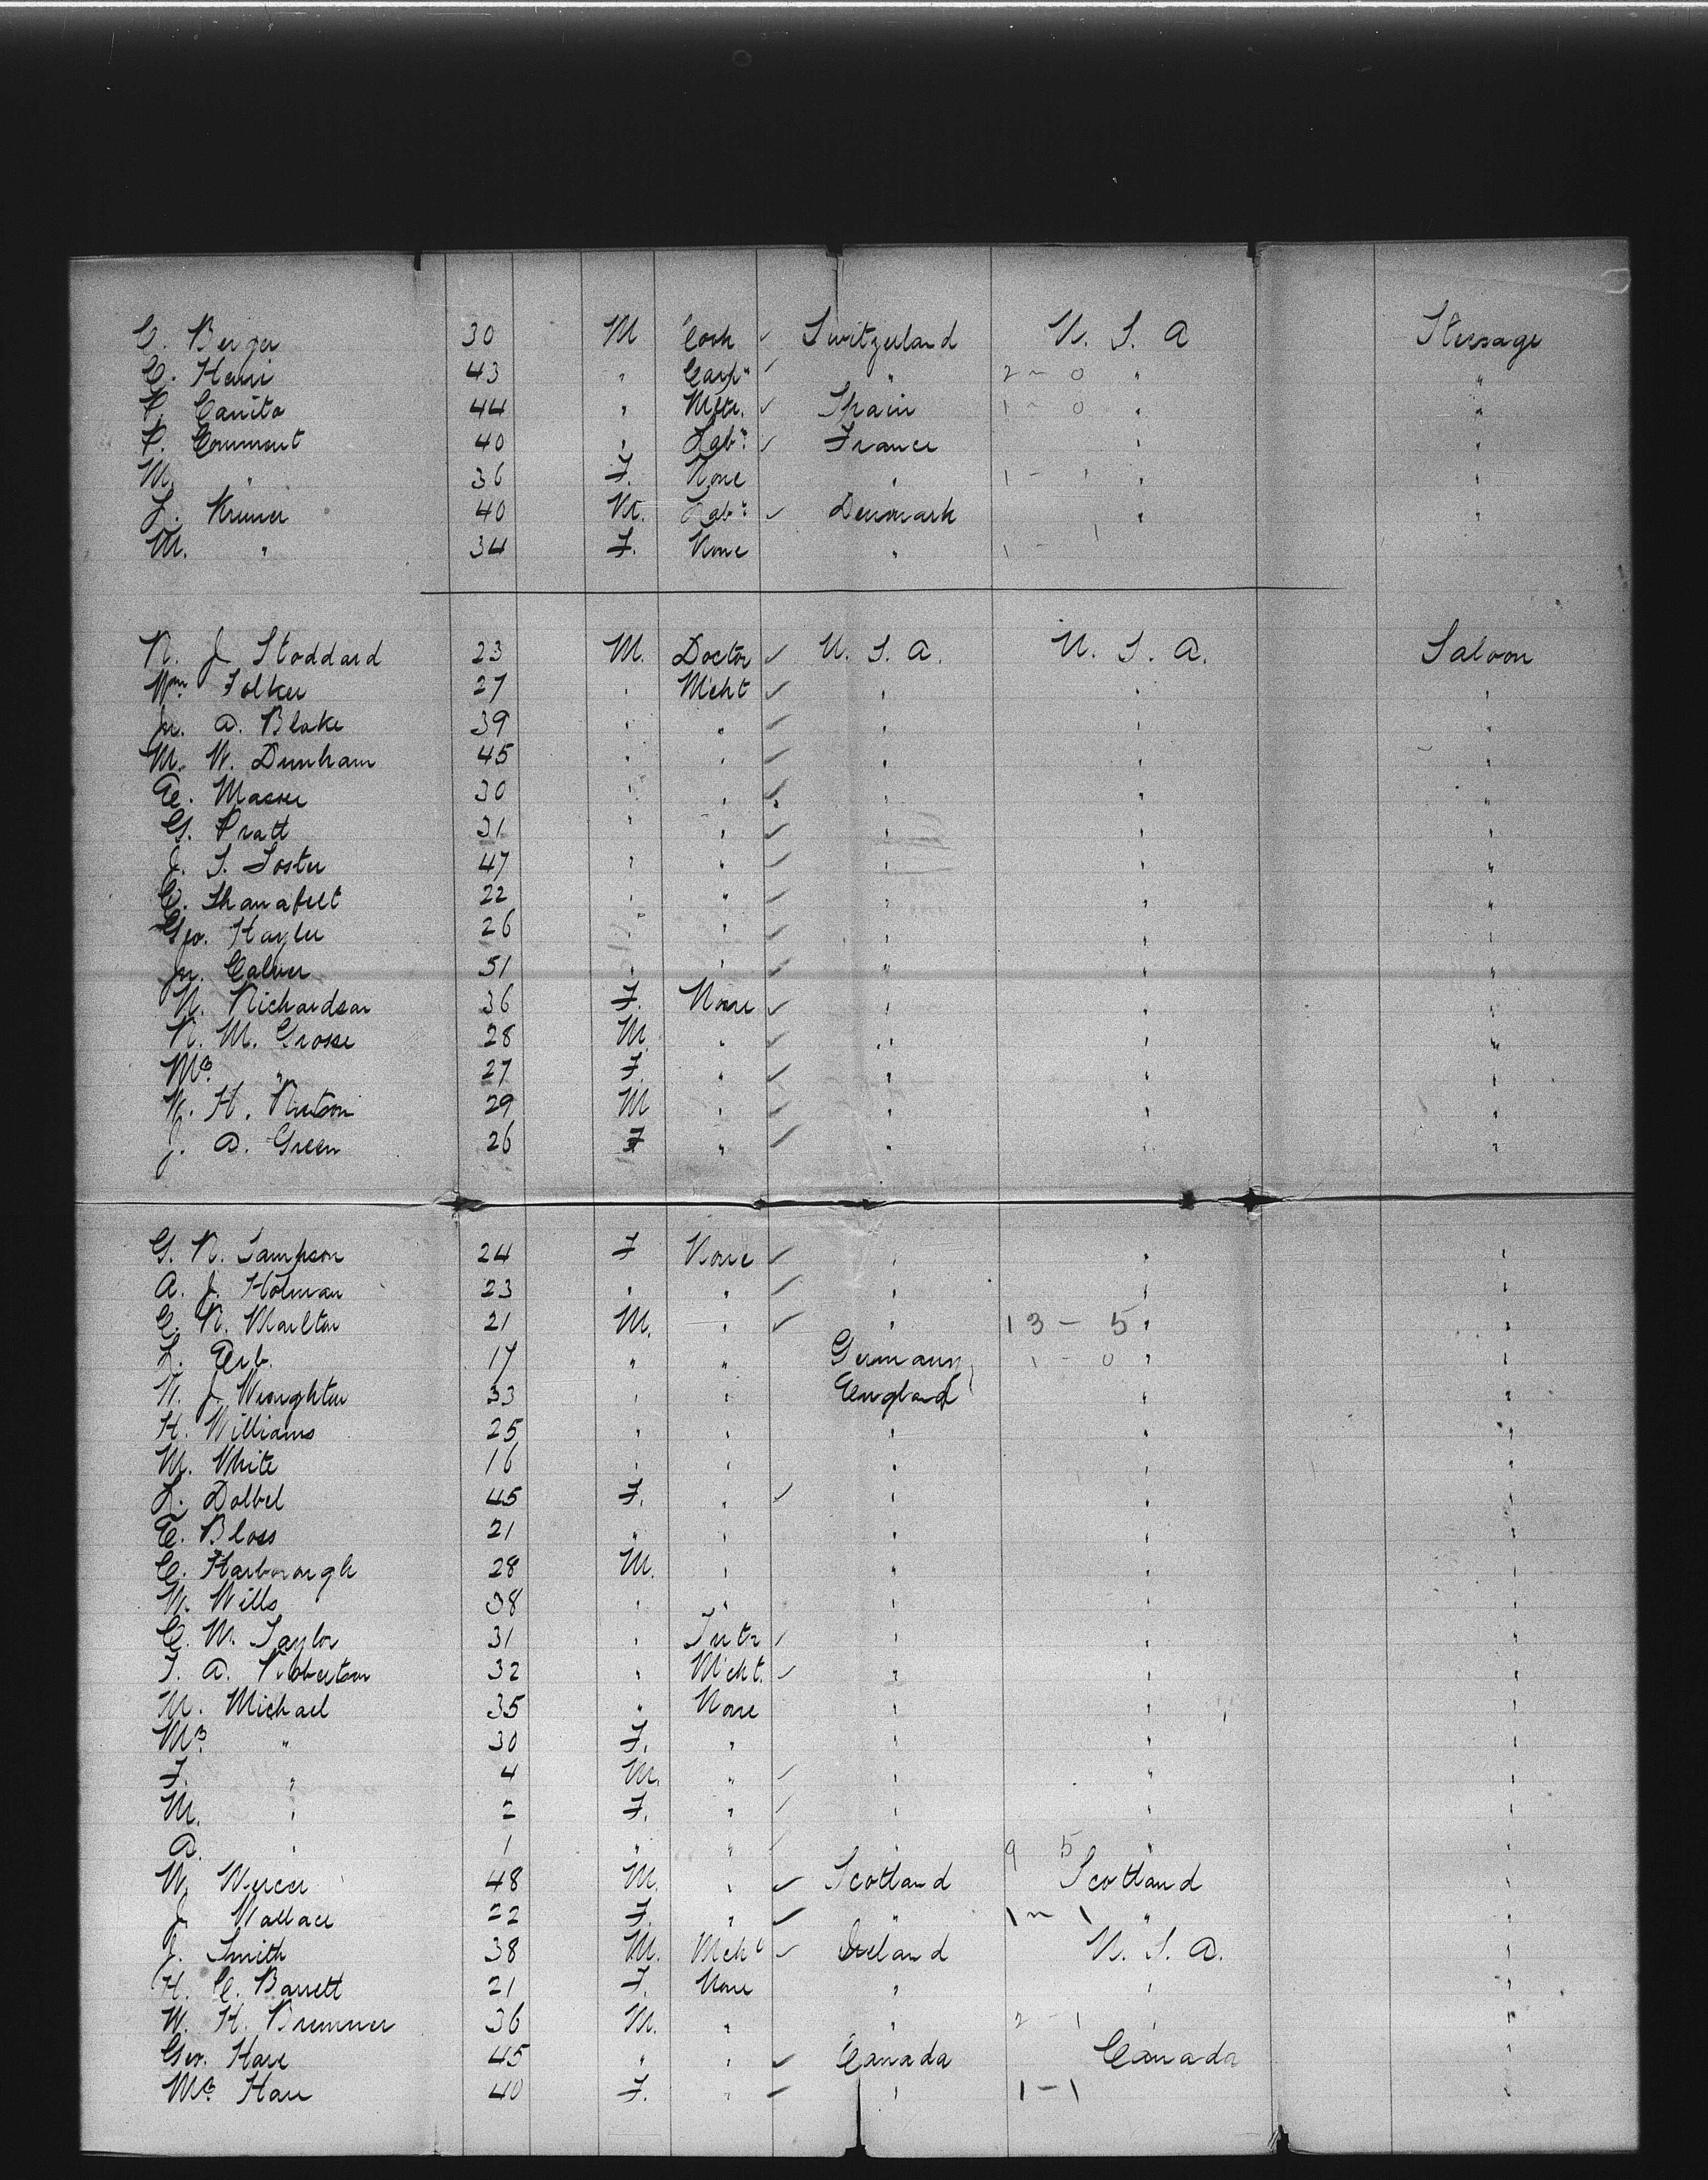 C. Berger 30 M Cook ✓ Switzerland U. S. A Steerage
C. Heni 43 " Carp" ✓ " 2 - 0 " "
Canito 44 " ✓ Spain 1 - 0 " "
P. Commout 40 " Labr ✓ France " "
M. " 36 F. None " 1 - 1 " "
L. 40 M. Labr ✓ Denmark " "
M. " 34 F. None " 1 - 1
J. Stoddard 23 M. Doctor ✓ U. S. A. U. S. A. Saloon
Wm Folker 27 " Mcht ✓ " " "
Jn. A. Blake 39 " " ✓ " " "
M. W. Dunham 45 " " ✓ " " "
E. 30 " " ✓ " " "
G. Pratt 31 " " ✓ " " "
J. S. Foster 47 " " ✓ " " "
C. Shanafelt 22 " " ✓ " " "
Geo. Hayler 26 " " ✓ " " "
Jn. Calver 51 " " ✓ " " "
N. Richardson 36 F. None ✓ " " "
R. M. Crosse 28 M " ✓ " " "
Mrs " 27 F. " ✓ " " "
W. H. 29 M " ✓ " " "
J. A. Green 26 F " ✓ " " "
G. R. Sampson 24 F None ✓ " " "
A. J. Holman 23 " " ✓ " " "
Marlton 21 M. " ✓ " 13 - 5 " "
L. Erb. 17 " " Germany 1 - 0 " "
J. Wroughton 33 " " England " "
H. Williams 25 " " " " "
M. White 16 " " " " "
L. Dolbel 45 F. " ✓ " " "
E. Bloss 21 " " " " "
C. Harborough 28 M. " " " "
W. Wills 38 " " " " "
C. W. Taylor 31 " ✓ " " "
T. A. Robertson 32 " Mcht. ✓ " " "
M. Michael 35 " None " " "
Mrs " 30 F. " " " "
F. " 4 M. " ✓ " " "
M. " 2 F. " ✓ " " "
A. " 1 " " ✓ " 9 5 " "
W. Mercer 48 M. " ✓ Scotland Scotland "
J. Wallace 22 F. " ✓ " 1 - 1 " "
J. Smith 38 M. Mcht ✓ Ireland U. S. A. "
H. C. Barrett 21 F. None " " "
W. H. Brunner 36 M. " " 2 - 1 " "
Geo. Hare 45 " " ✓ Canada Canada "
Mrs Hare 40 F. " ✓ " 1 - 1 "